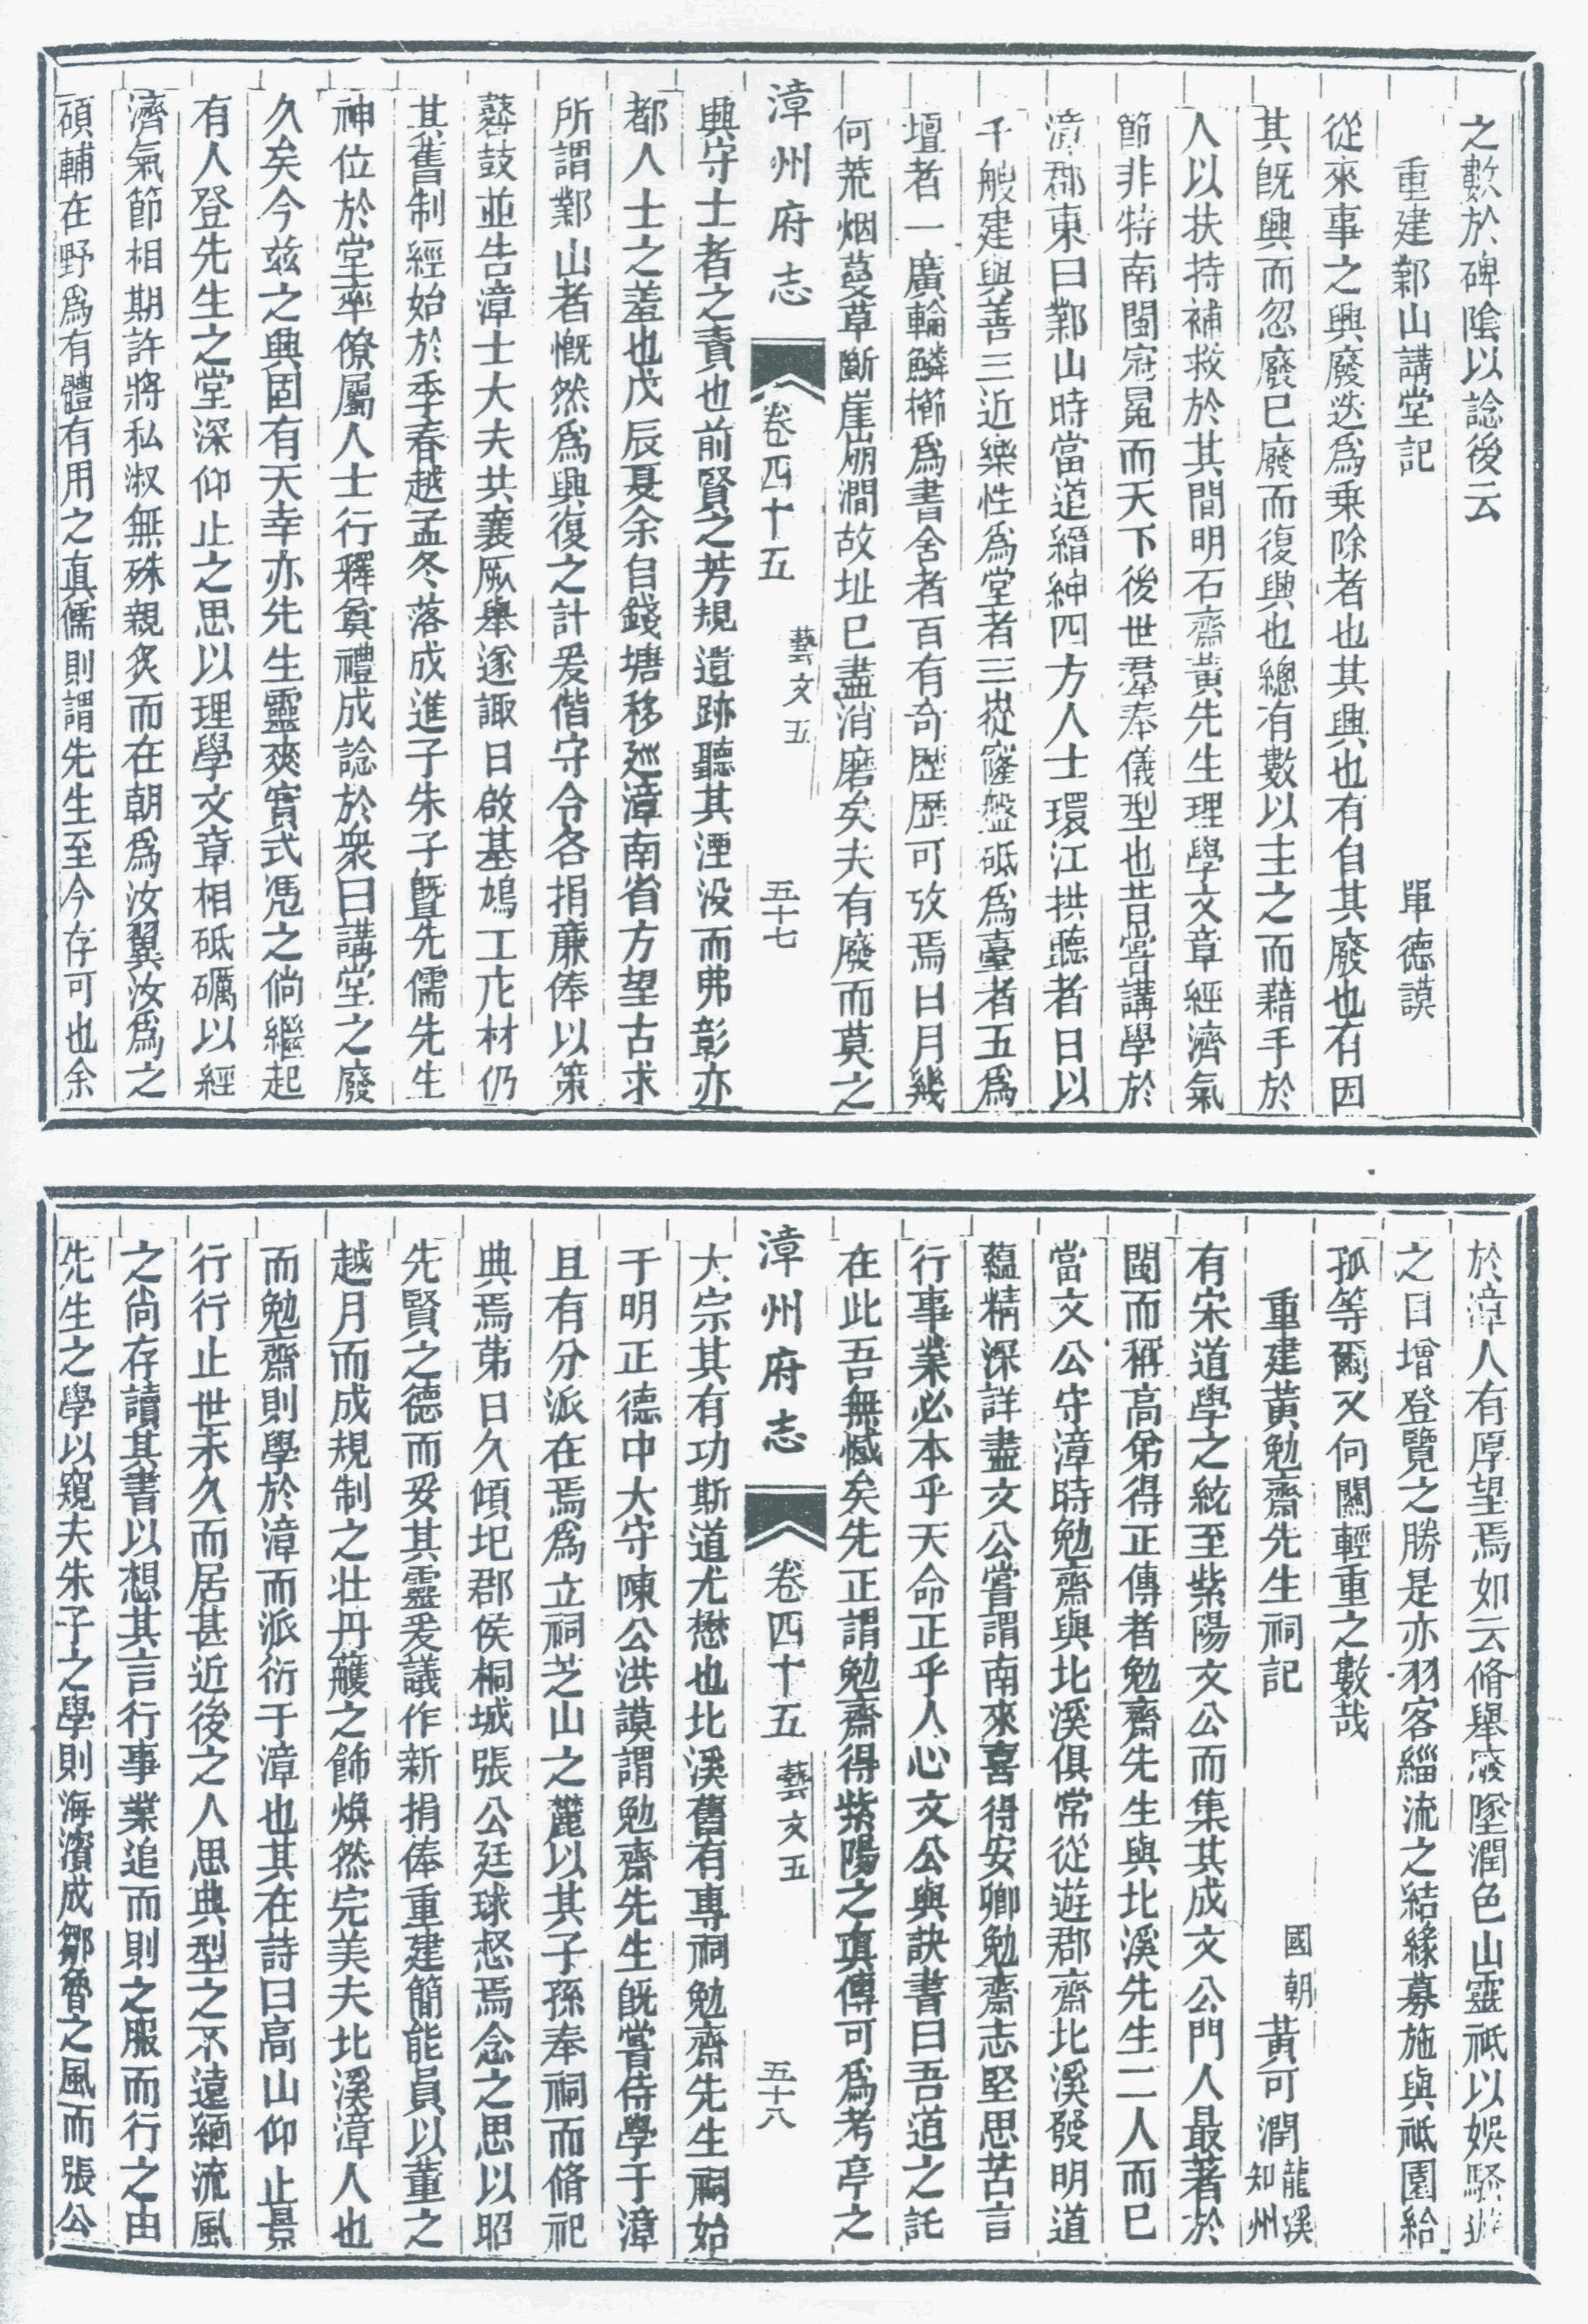 之數於碑陰以諗後云
重建鄴山講堂記 單德謨
從來事之興廢迭爲乗除者也其興也有自其廢也有因
其旣興而忽廢巳廢而復興也總有數以主之而藉手於
人以扶持補救於其間明石齋黃先生理學文章經濟氣
節非特南閩冠冕而天下後世羣奉儀型也昔嘗講學於
漳郡東曰鄴山時當道縉紳四方人士環江拱聽者日以
千艘建與善三近樂性爲堂者三㠝窿盤砥爲臺者五爲
壇者一廣輪鱗櫛爲書舍者百有奇歷歷可攷焉日月幾
何荒烟蔓草斷崖崩澗故址巳盡消磨矣夫有廢而莫之
漳州府志 卷四十五 藝文五 五十七
興守士者之責也前賢之芳規遺跡聽其湮没而弗彰亦
都人士之羞也戊辰夏余自錢塘移廵漳南省方望古求
所謂鄴山者慨然爲興復之計爰偕守令各捐廉俸以策
鼛鼓並告漳士大夫共襄厥舉遂諏日啟基鳩工庀材仍
其舊制經始於季春越孟冬落成進子朱子曁先儒先生
神位於堂率僚屬人士行釋奠禮成諗於衆曰講堂之廢
久矣今兹之興固有天幸亦先生靈爽實式凭之倘繼起
有人登先生之堂深仰止之思以理學文章相砥礪以經
濟氣節相期許將私淑無殊親炙而在朝爲汝翼汝爲之
碩輔在野爲有體有用之眞儒則謂先生至今存可也余
於漳人有厚望焉如云脩舉廢墜潤色山靈祗以娛騷遊
之目增登覽之勝是亦羽客緇流之結緣募施與祗園給
孤等爾又何關輕重之數哉
重建黃勉齋先生祠記 國朝 黃可潤 龍溪知州
有宋道學之統至紫陽文公而集其成文公門人最著於
閩而稱高弟得正傳者勉齋先生與北溪先生二人而巳
當文公守漳時勉齋與北溪俱常從遊郡齋北溪發明道
蘊精深詳盡文公嘗謂南來喜得安卿勉齋志堅思苦言
行事業必本乎天命正乎人心文公與訣書曰吾道之託
在此吾無憾矣先正謂勉齋得紫陽之眞傳可爲考亭之
漳州府志 卷四十五 藝文五 五十八
大宗其有功斯道尤懋也北溪舊有專祠勉齋先生祠始
于明正德中大守陳公洪謨謂勉齋先生旣嘗侍學于漳
且有分派在焉爲立祠芝山之麓以其子孫奉祠而脩祀
典焉第日久傾圯郡侯桐城張公廷球惄焉念之思以昭
先賢之德而妥其靈爰議作新捐俸重建簡能員以董之
越月而成規制之壯丹雘之飾煥然完美夫北溪漳人也
而勉齋則學於漳而派衍于漳也其在詩曰高山仰止景
行行止世未久而居甚近後之人思典型之不遠緬流風
之尚存讀其書以想其言行事業追而則之服而行之由
先生之學以窺夫朱子之學則海濱成鄒魯之風而張公